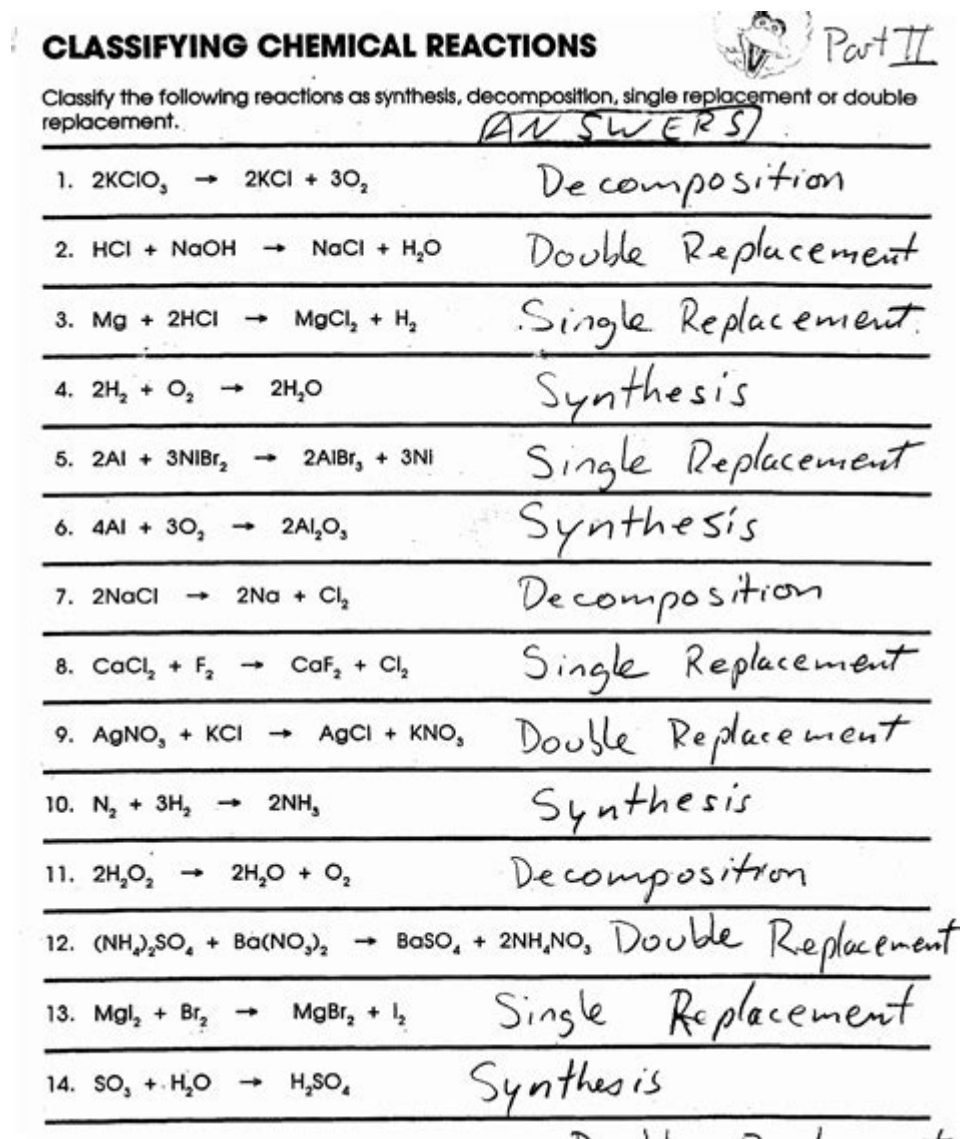 CLASSIFYING CHEMICAL REACTIONS Part II
Classify the following reactions as synthesis, decomposition, single replacement or double
replacement. ANSWERS
1. 2KClO₃ → 2KCl + 3O₂ Decomposition
2. HCl + NaOH → NaCl + H₂O Double Replacement
3. Mg + 2HCl → MgCl₂ + H₂ Single Replacement.
4. 2H₂ + O₂ → 2H₂O Synthesis
5. 2Al + 3NiBr₂ → 2AlBr₃ + 3Ni Single Replacement
6. 4Al + 3O₂ → 2Al₂O₃ Synthesis
7. 2NaCl → 2Na + Cl₂ Decomposition
8. CaCl₂ + F₂ → CaF₂ + Cl₂ Single Replacement
9. AgNO₃ + KCl → AgCl + KNO₃ Double Replacement
10. N₂ + 3H₂ → 2NH₃ Synthesis
11. 2H₂O₂ → 2H₂O + O₂ Decomposition
12. (NH₄)₂SO₄ + Ba(NO₃)₂ → BaSO₄ + 2NH₄NO₃ Double Replacement
13. MgI₂ + Br₂ → MgBr₂ + I₂ Single Replacement
14. SO₃ + H₂O → H₂SO₄ Synthesis